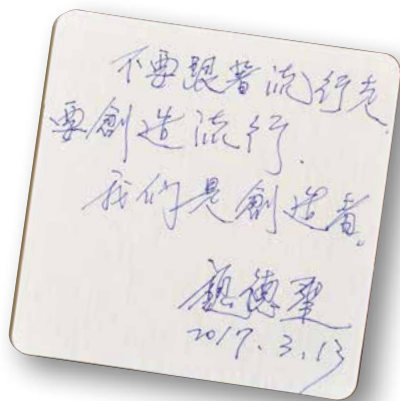 不要跟著流行走.
要創造流行.
我们是創造者。
魏德聖
2017.3.13